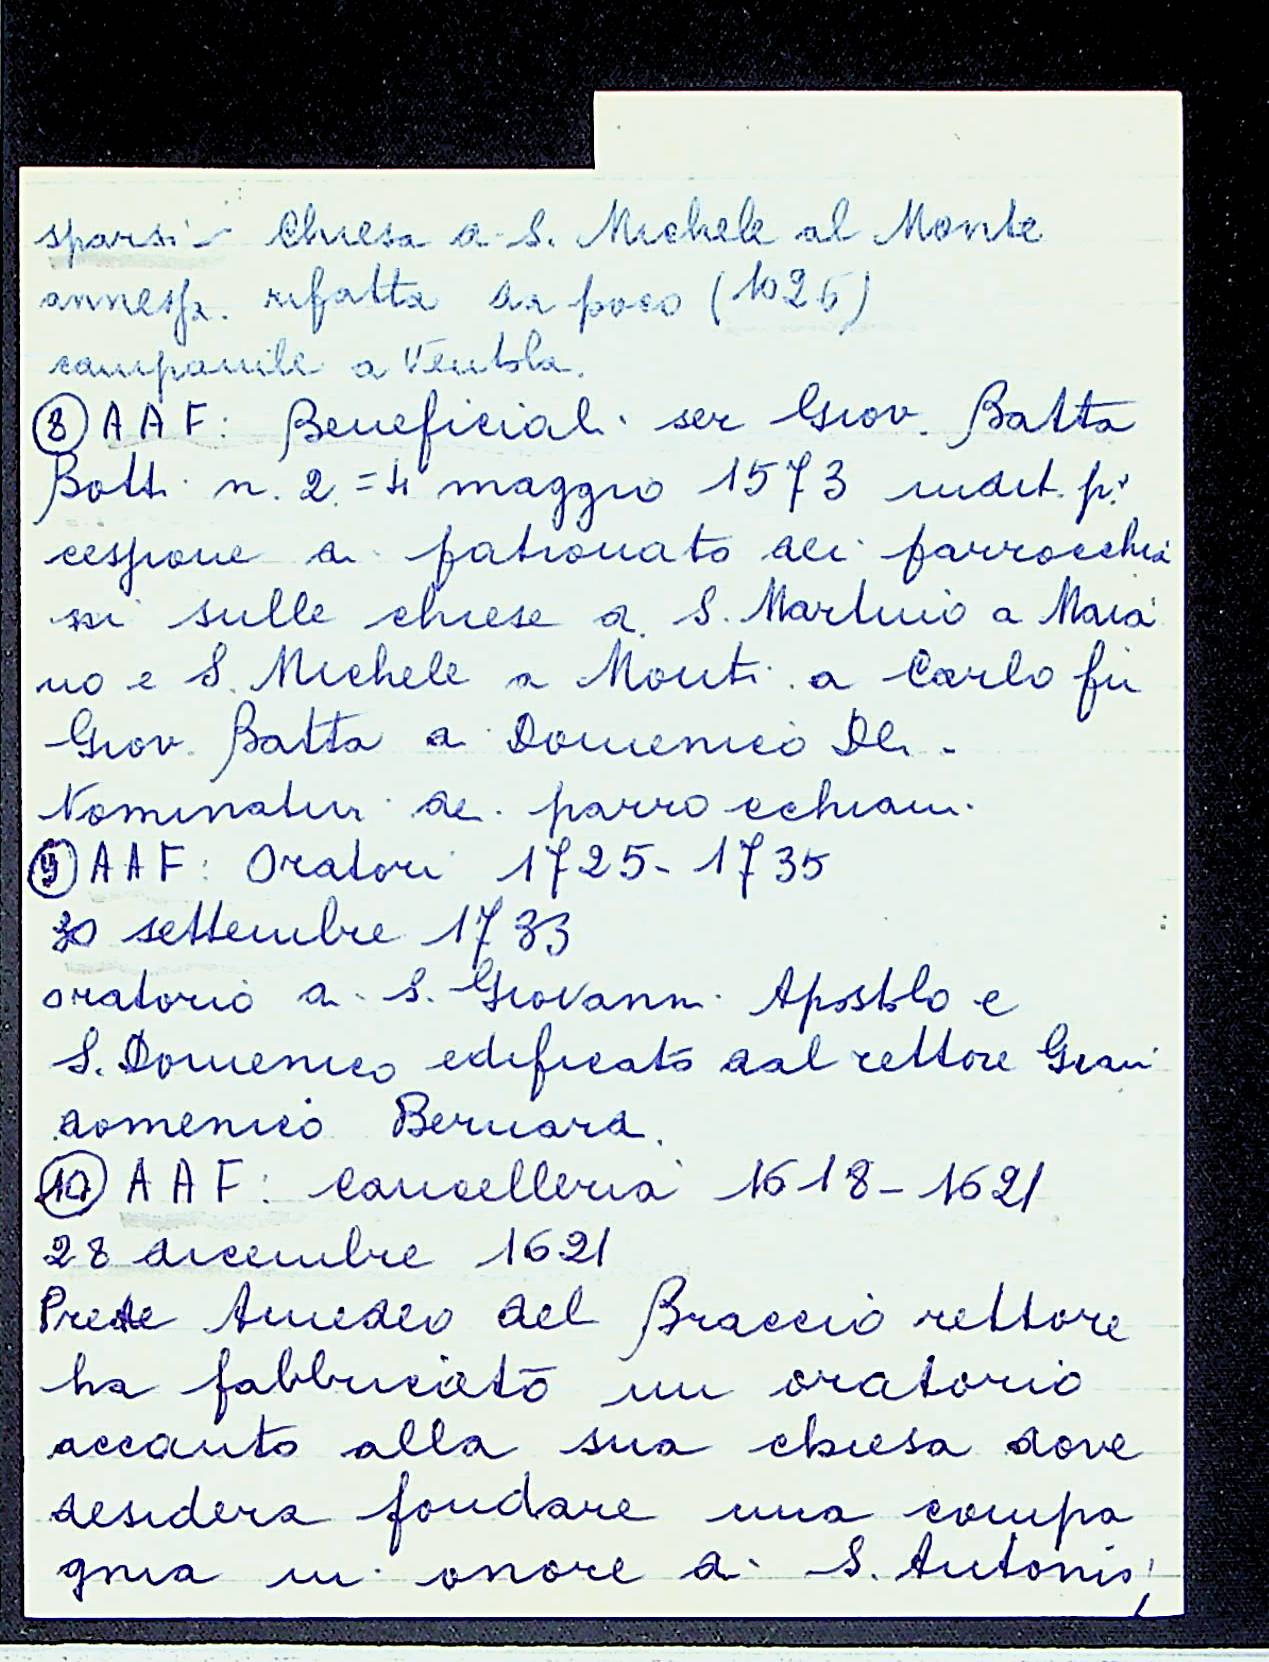 sparsi - Chiesa di S. Michele al Monte
annessa. rifatta da poco (1026)
campanile a Ventola.
⑧ A A F: Beneficiali ser Giov. Batta
Botti n. 2 = 4 maggio 1573 indit. p.
cessione di patronato dei parrocchia
ni sulle chiese di S. Martino a Maia
no e S. Michele a Monti a Carlo fu
Giov. Batta di Domenico
Nominatur dei parrocchiani.
⑨ A A F: Oratori 1725 - 1735
30 settembre 1733
oratorio di S. Giovanni Apostolo e
S. Domenico edificato dal rettore Gian
domenico Bernardi.
⑩ A A F: Cancelleria 1618 - 1621
28 dicembre 1621
Prete Amedeo del Braccio rettore
ha fabbricato un oratorio
accanto alla sua chiesa dove
desidera fondare una compa
gnia in onore di S. Antonio,